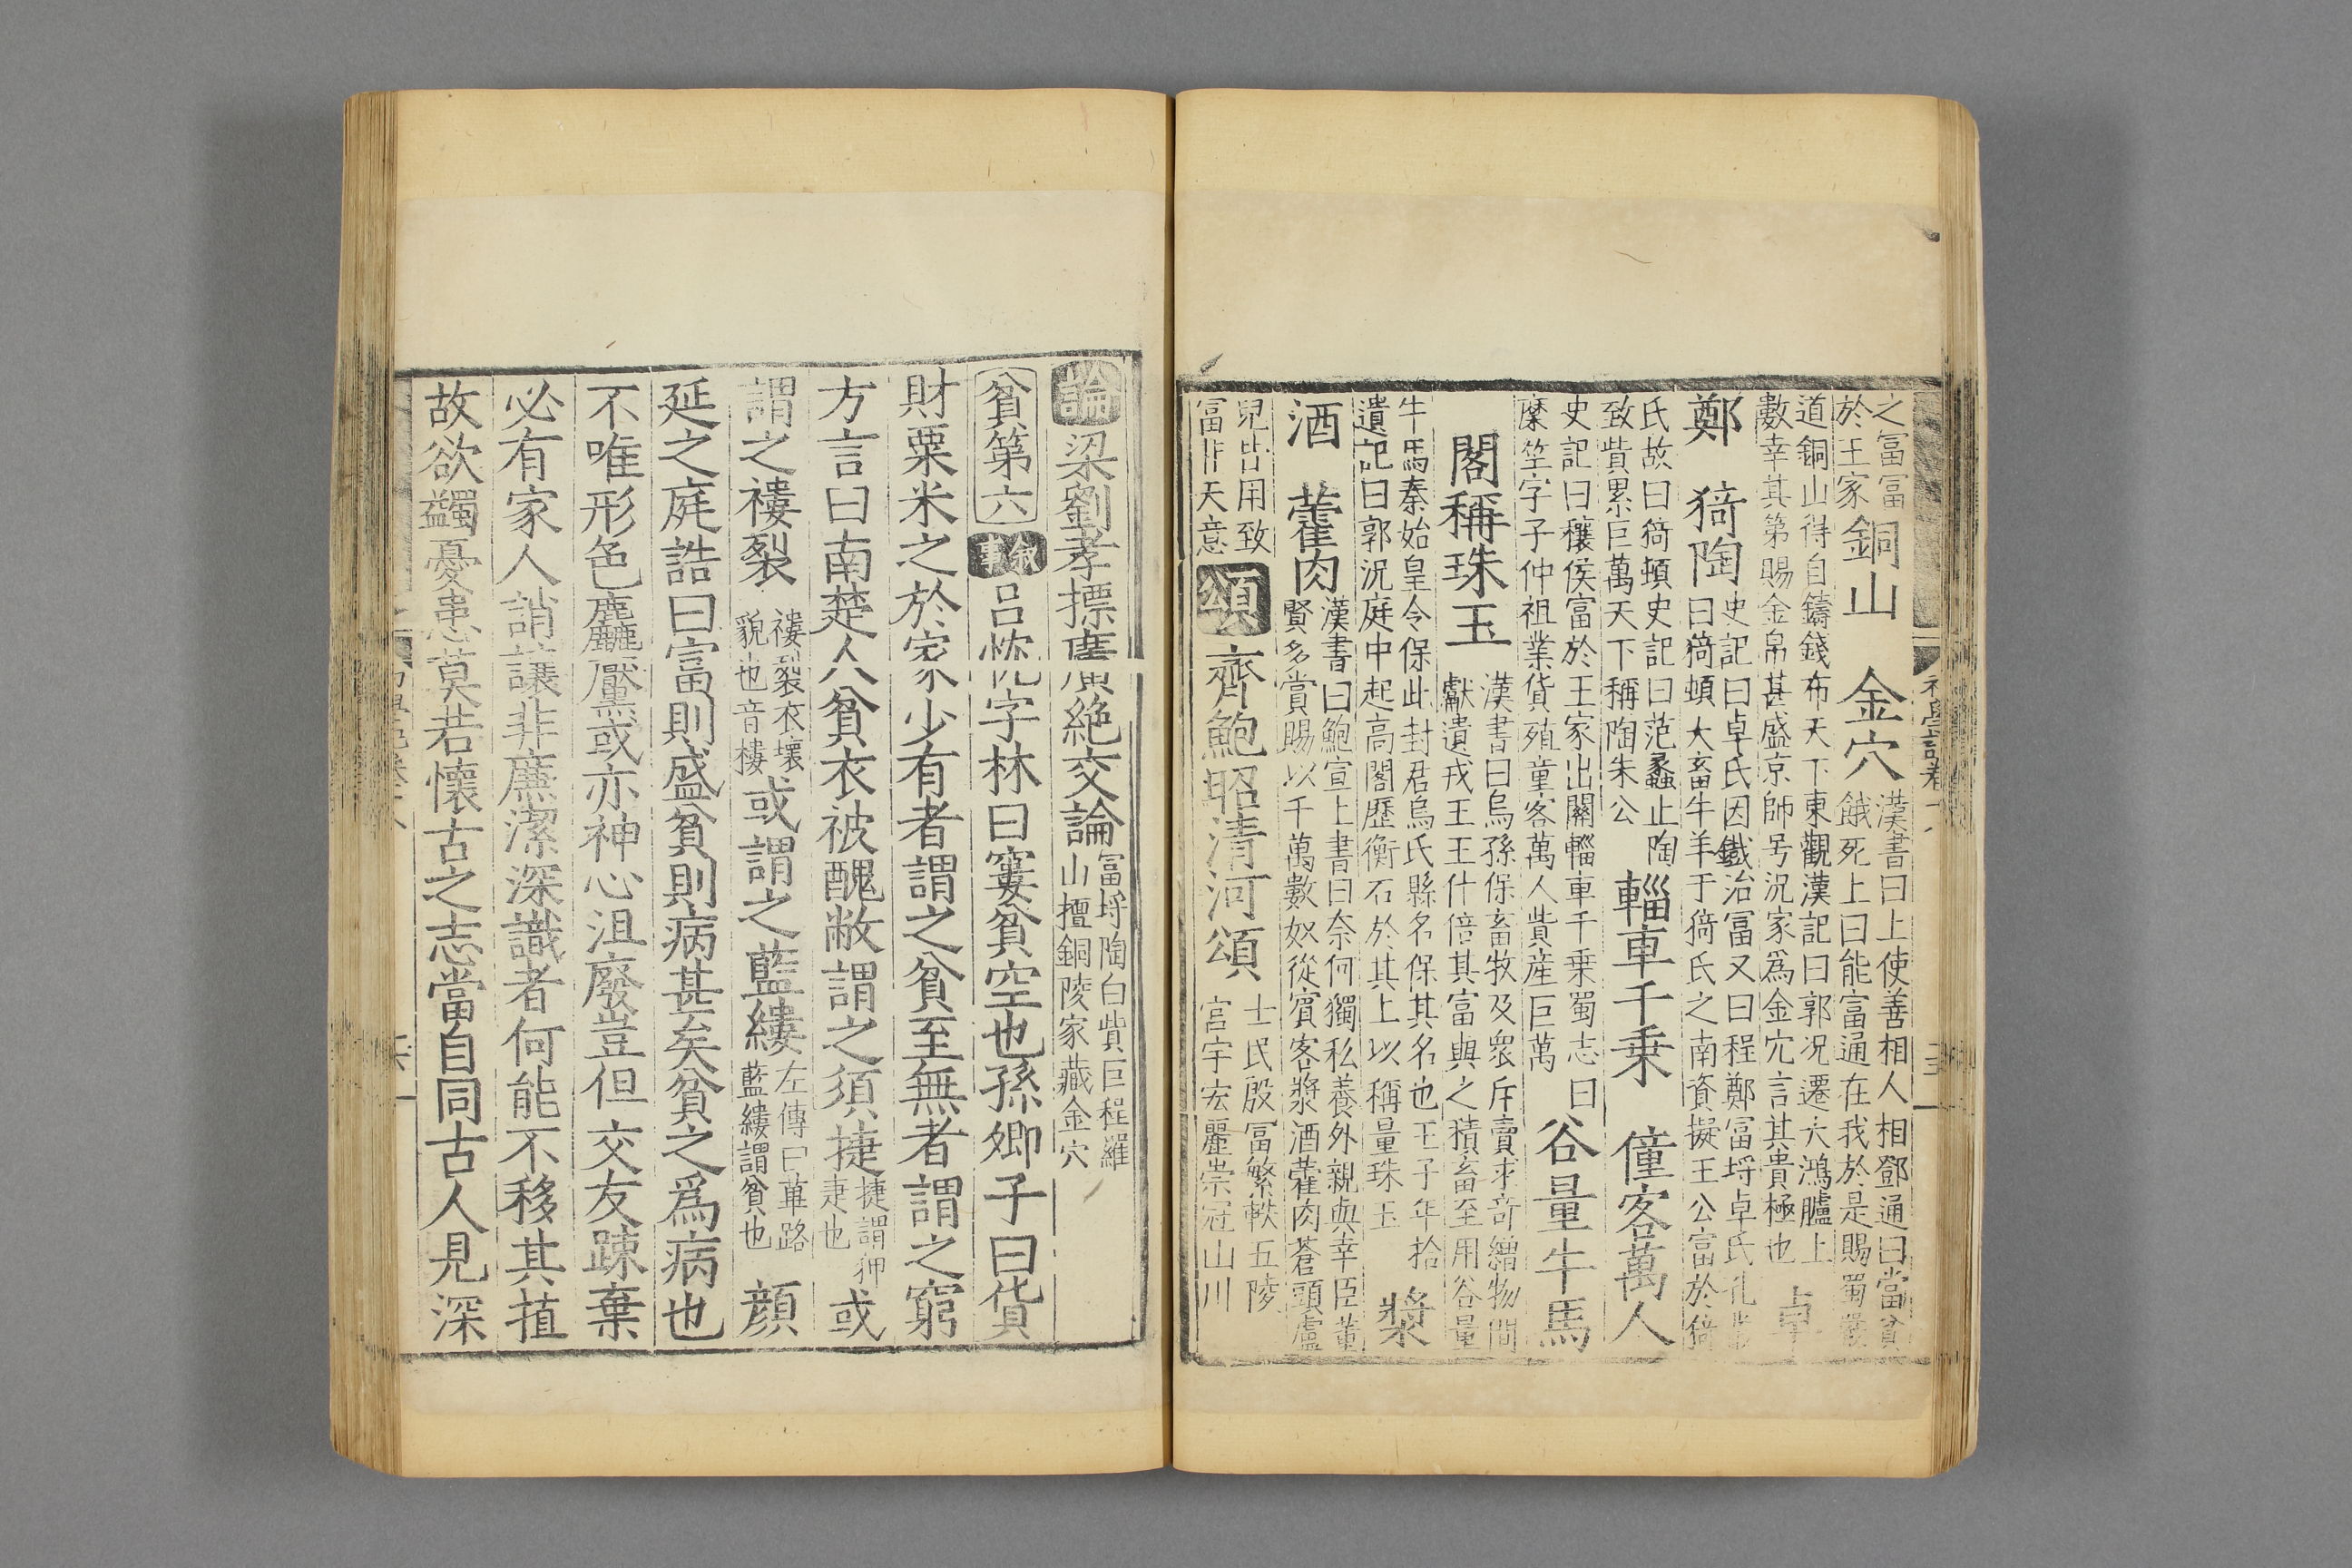 之富富
於王家銅山 金穴漢書曰上使善相人相鄧通曰當貧
餓死上曰能富通在我於是賜蜀嚴
道銅山得自鑄錢布天下東觀漢記曰郭况遷大鴻臚上
數幸其第賜金帛甚盛京師号况家爲金穴言其貴極也 卓
鄭 猗陶史記曰卓氏因鐵冶富又曰程鄭富埒卓氏孔叢
曰猗頓大畜牛羊于猗氏之南資擬王公富於猗
氏故曰猗頓史記曰范蠡止陶
致貲累巨萬天下稱陶朱公 輜車千乗 僮客萬人
史記曰穰侯富於王家出關輜車千乗蜀志曰
麋竺字子仲祖業貨殖童客萬人貲産巨萬 谷量牛馬
閣稱珠玉漢書曰烏孫保畜牧及衆斥賣求奇繒物間
獻遺戎王王什倍其富與之積畜至用谷量
牛馬秦始皇令保此封君烏氏縣名保其名也王子年拾
遺記曰郭況庭中起高閣歷衡石於其上以稱量珠玉 漿
酒 藿肉漢書曰鮑宣上書曰奈何獨私養外親與幸臣董
賢多賞賜以千萬數奴從賓客漿酒藿肉蒼頭盧
兒皆用致
富非天意 頌齊鮑昭清河頌士民殷富繁軼五陵
宮宇宏麗崇冠山川
論梁劉孝摽廣絶交論富埒陶白貲巨程羅
山擅銅陵家藏金穴
貧第六 叙事 吕忱字林曰窶貧空也孫卿子曰貨
財粟米之於家少有者謂之貧至無者謂之窮
方言曰南楚人貧衣被醜敝謂之須捷捷謂狎
疌也 或
謂之褸裂褸裂衣壞
貌也音樓 或謂之藍縷左傳曰蓽路
藍縷謂貧也 顔
延之庭誥曰富則盛貧則病甚矣貧之爲病也
不唯形色麤黶或亦神心沮廢豈但交友踈棄
必有家人誚讓非廉潔深識者何能不移其植
故欲蠲憂患莫若懷古之志當自同古人見深